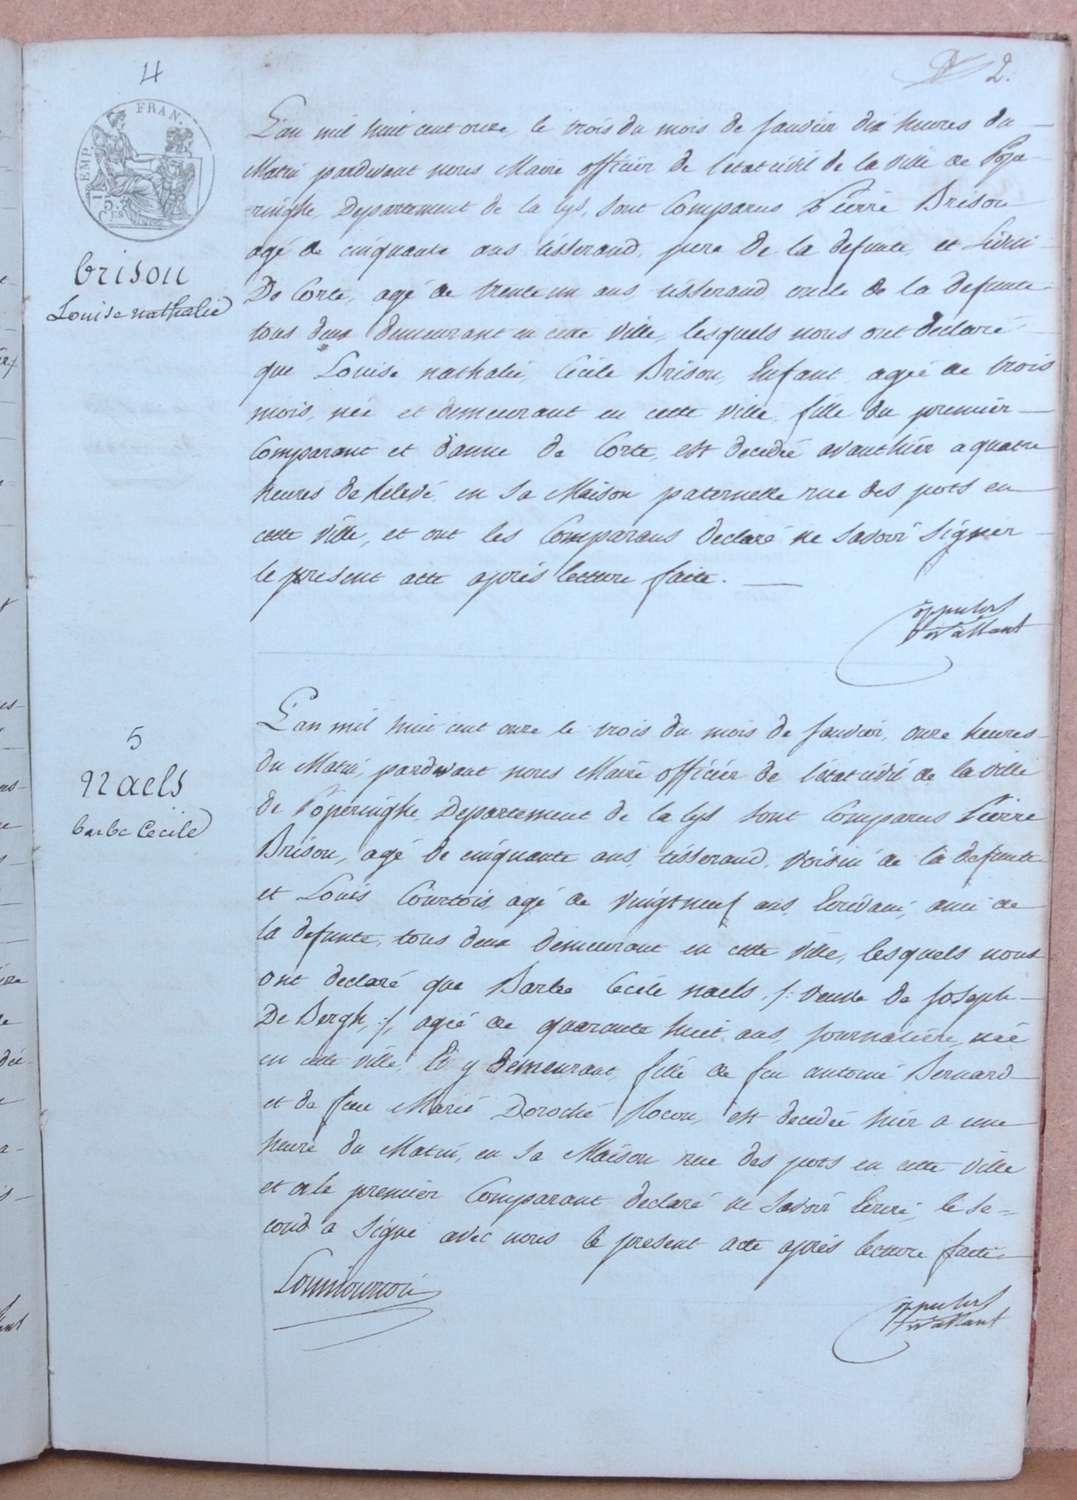 4
2.
EMP. FRAN.
brison
Louise nathalie
L'an mil huit cent onze, le trois du mois de Janvier dix heures du
Matin pardevant nous Maire officier de l'etat civil de la ville de Pope-
ringhe, Departement de la Lys, sont Comparus Pierre Brison
agé de cinquante ans tisserand, pere de la defunte, et
De Corte, agé de trente un ans, tisserand, oncle de la defunte
tous deux demeurant en cette ville, lesquels nous ont declaré
que Louise nathalie, Cécile Brison, Enfant, agée de trois
mois, née et demeurant en cette ville, fille du premier
Comparant et d'anne de Corte, est decedée avanthier a quatre
heures de relevé, en sa Maison paternelle rue des pots en
cette ville, et ont les Comparans declaré ne savoir signer
le present acte après lecture faite.
5
Naels
barbe Cecile
L'an mil huit cent onze le trois du mois de Janvier, onze heures
du Matin, pardevant nous Maire officier de l'etat civil de la ville
de Poperinghe, Departement de la Lys sont Comparus Pierre
Brison, agé de cinquante ans, tisserand, voisin de la defunte
et Louis Courtois, agé de vingt neuf ans, ami de
la defunte, tous deux demeurant en cette ville, lesquels nous
ont declaré que Barbe Cécile naels, /: veuve de Joseph
De Bergh, :/, agée de quarante huit ans, Journaliere, née
en cette ville, Et y demeurant, fille de feu antoine Bernard
et de feue Marie Dorothé, est decedée hier a une
heure du Matin, en sa Maison rue des pots en cette ville
et a le premier Comparant declaré ne savoir Ecrire, le se-
cond a signé avec nous le present acte après lecture faite